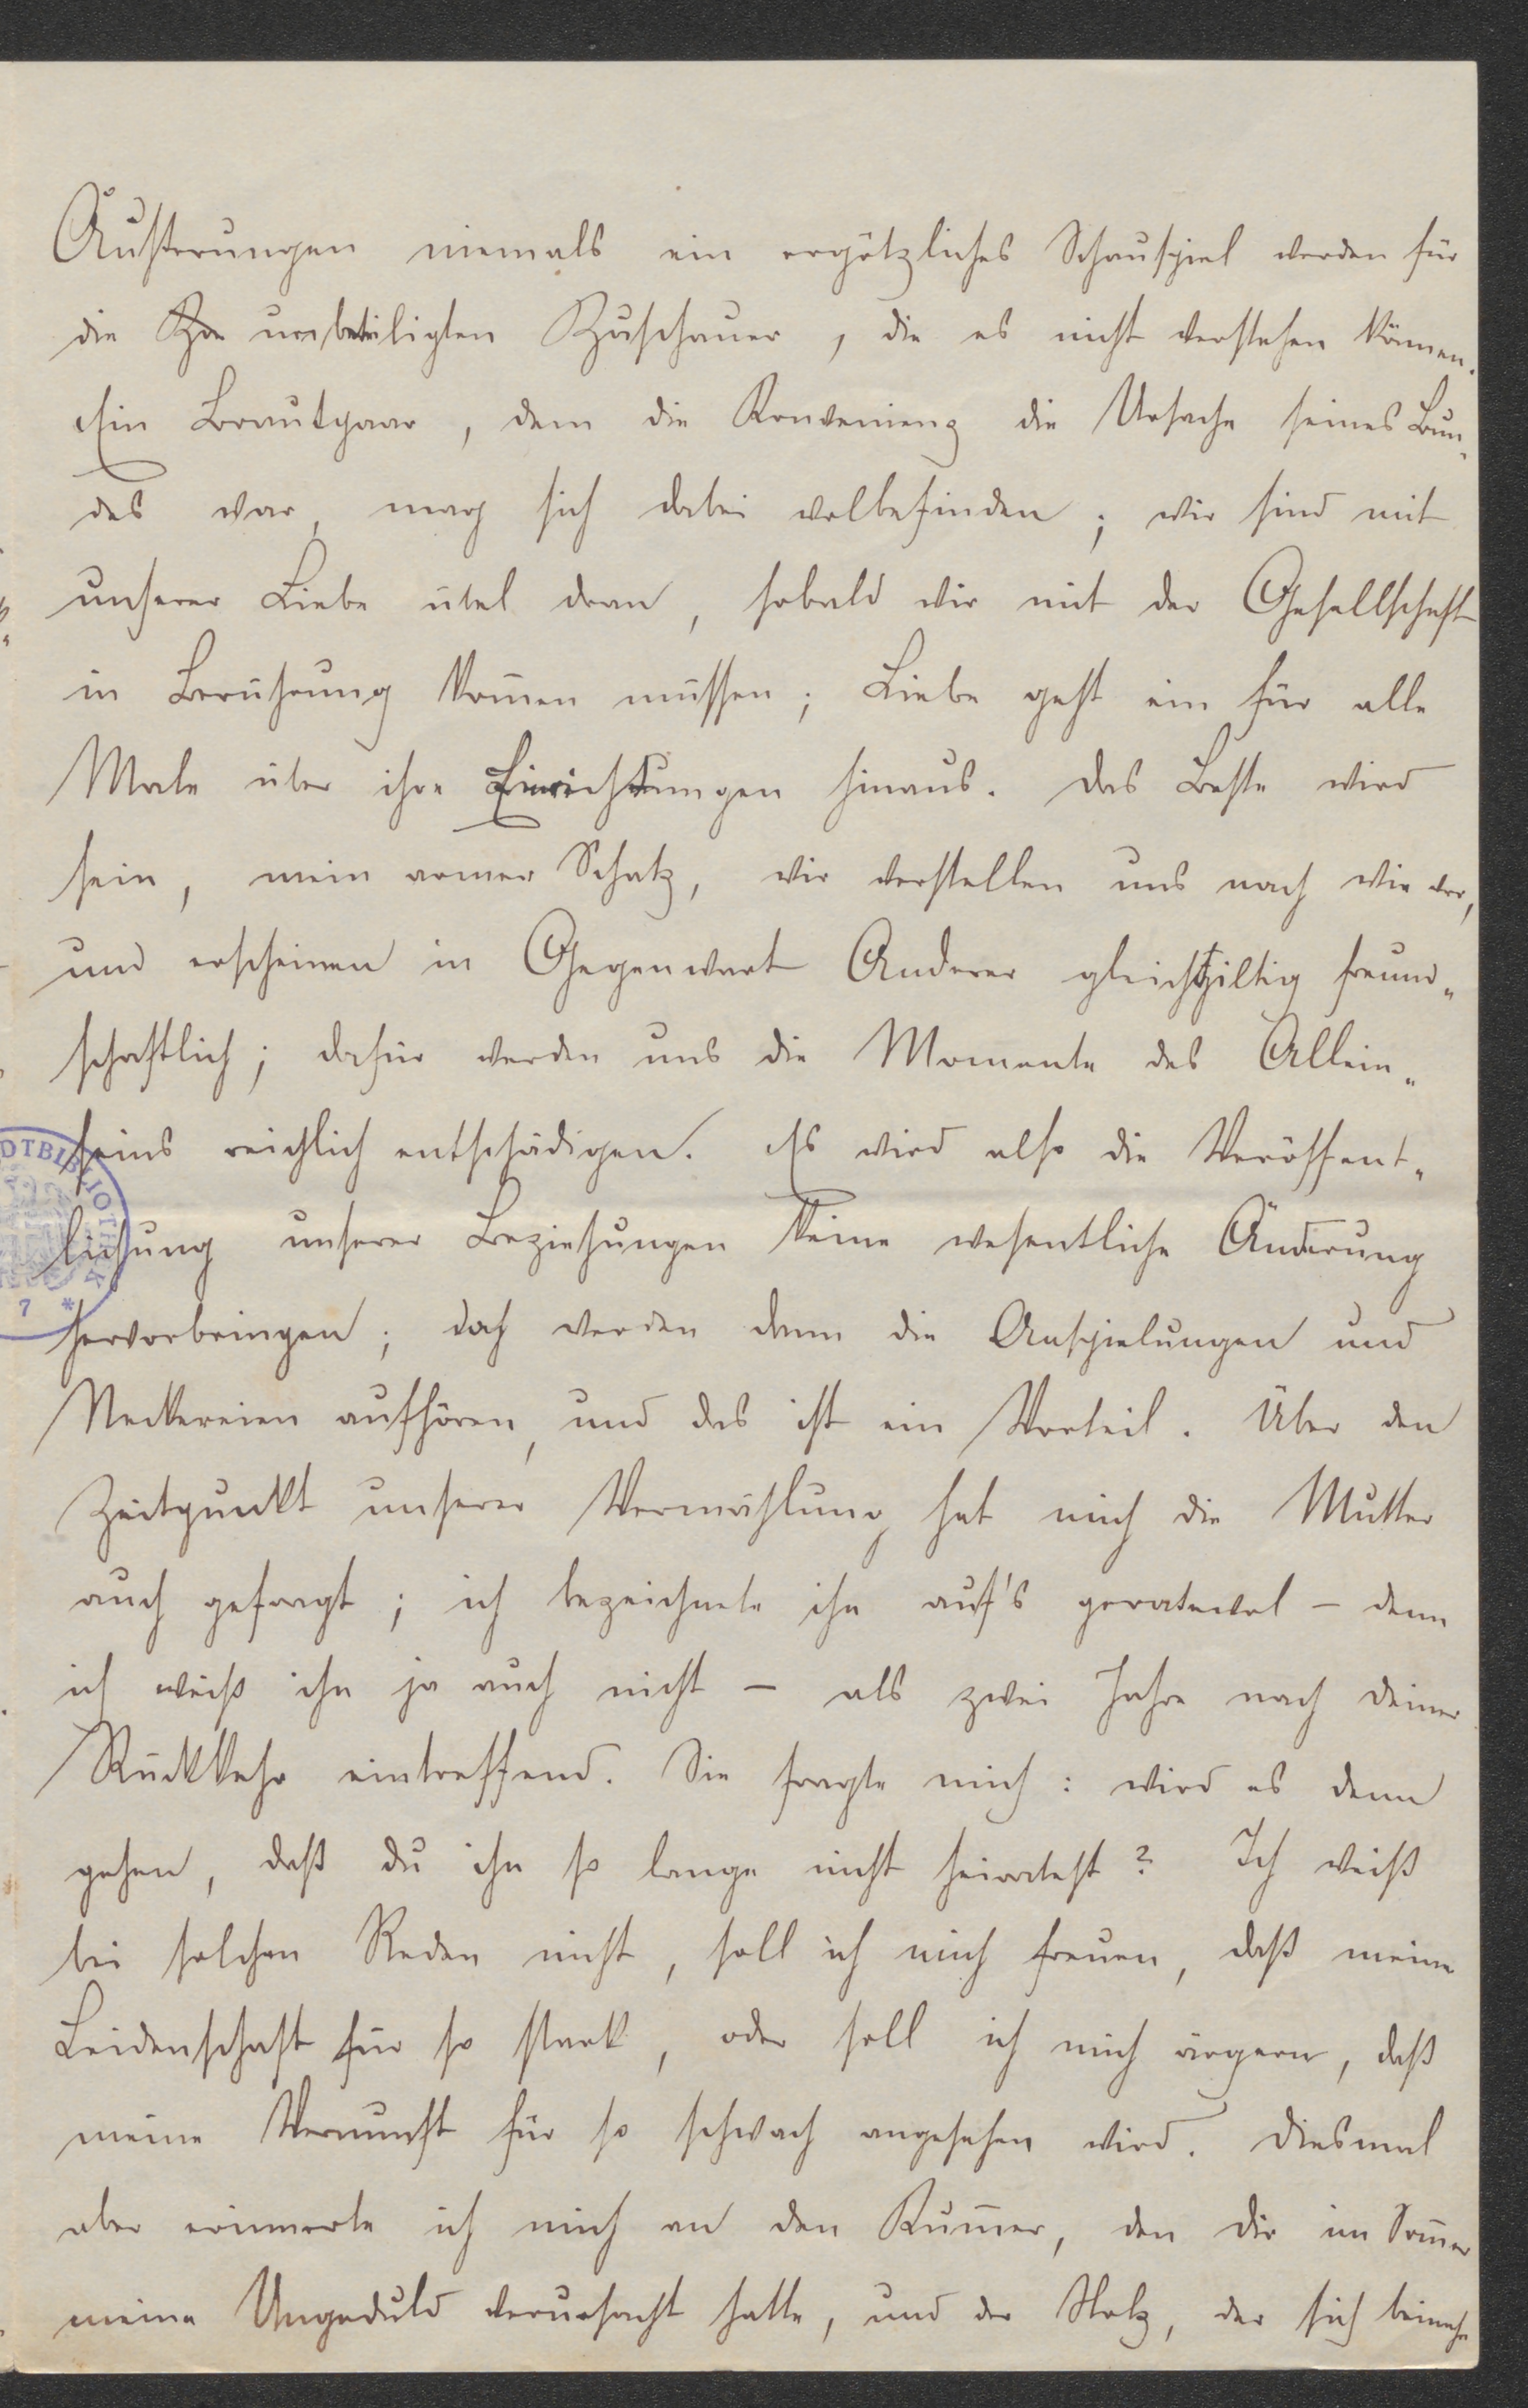 Äußerungen niemals ein ergötzliches Schauspiel werden für
die Zu unbeteiligten Zuschauer, die es nicht verstehen können.
Ein Brautpaar, dem die Konvenienz die Ursache seines Bun-
des war, mag sich dabei wolbefinden; wir sind mit
unserer Liebe übel dran, sobald wir mit der Gesellschaft
in Berührung kom̄en müssen; Liebe geht ein für alle
Male über ihre Einrichtungen hinaus. Das Beste wird
sein, mein armer Schatz, wir verstellen uns nach wie vor,
und erscheinen in Gegenwart Anderer gleichgiltig freund-
schaftlich; dafür werden uns die Momente des Allein-
seins reichlich entschädigen. Es wird also die Veröffent-
lichung unserer Beziehungen keine wesentliche Änderung
hervorbringen; doch werden dann die Anspielungen und
Neckereien aufhören, und das ist ein Vorteil. Über den
Zeitpunkt unserer Vermählung hat mich die Mutter
auch gefragt; ich bezeichnete ihn auf's geratewol – denn
ich weiß ihn ja auch nicht – als zwei Jahre nach deiner
Rückkehr eintreffend. Sie fragte mich: wird es denn
gehen, daß du ihn so lange nicht heiratest? Ich weiß
bei solchen Reden nicht, soll ich mich freuen, daß meine
Leidenschaft für so stark, oder soll ich mich ärgern, daß
meine Vernunft für so schwach angesehen wird. Diesmal
aber erinnerte ich mich an den Kum̄er, den dir im Som̄er
meine Ungeduld verursacht hatte, und der Stolz, der sich beinahe
DTBIBLIOTHEK
7 *